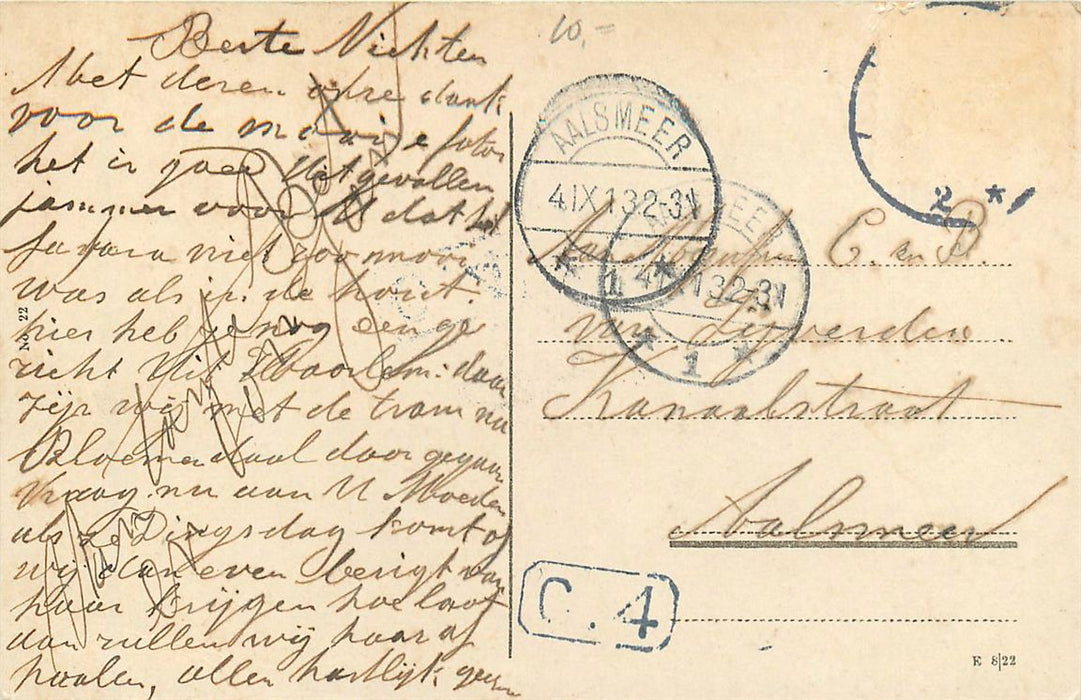 10,=
Beste Nichten
Met deren dank
voor de mooije foto's
het is goed Uitgevallen
jammer voor U dat het
niet zoo mooi
was als ip de hout.
hier heb je nog een ge
zicht Uit Haarlem: daar
zijn wij met de tram na
Bloemendaal door gegaan
vraag nu aan U Moeder
als ze Dingsdag komt of
wij dan even berigt van
haar krijgen hoe laat
dan zullen wij haar af
haalen, allen hartlijk
No. 22
AALSMEER
4 IX 13 2-3N
* 1 *
4 IX 13 2-3N
* 1 *
2 *
C. en P.
van Zijverden
Kanaalstraat
Aalsmeer
C. 4
E 8|22